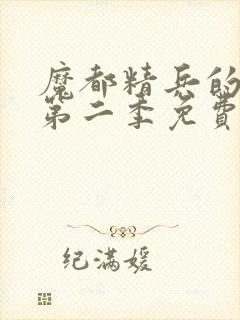 魔都精兵的
第二季免費
纪满媛